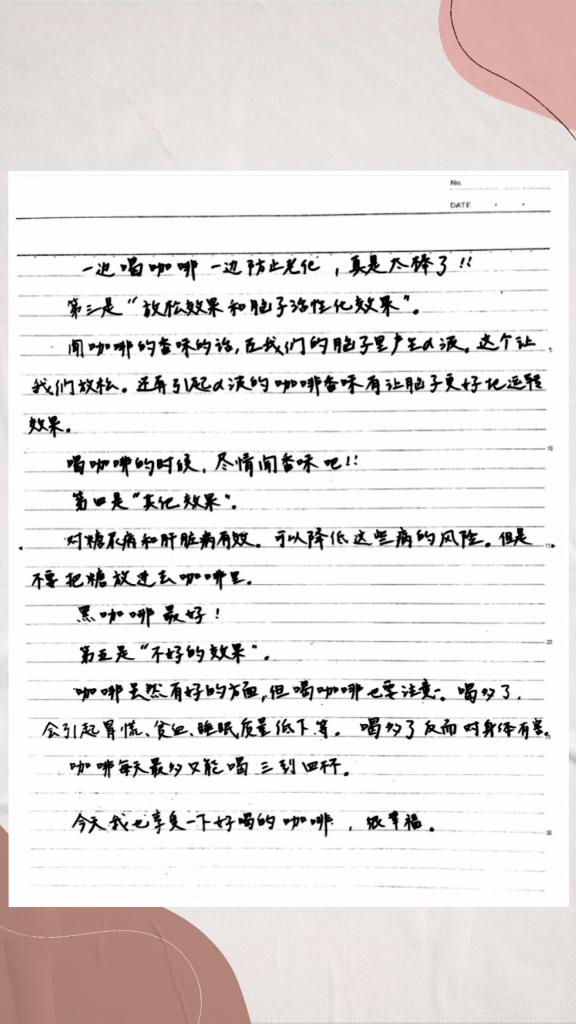 No.
DATE
一边喝咖啡一边防止老化，真是太棒了!!
第三是“放松效果和脑子活性化效果”。
闻咖啡的香味的话,在我们的脑子里产生α波。这个让
我们放松。还有引起α波的咖啡香味有让脑子更好地运转
效果。
喝咖啡的时候，尽情闻香味吧!!
第四是“其他效果”。
对糖尿病和肝脏病有效。可以降低这些病的风险。但是
不要把糖放进去咖啡里。
黑咖啡最好！
第五是“不好的效果”。
咖啡虽然有好的方面,但喝咖啡也要注意。喝多了，
会引起胃慌、贫血、睡眠质量低下等。喝多了反而对身体有害。
咖啡每天最多只能喝三到四杯。
今天我也享受一下好喝的咖啡，很幸福。